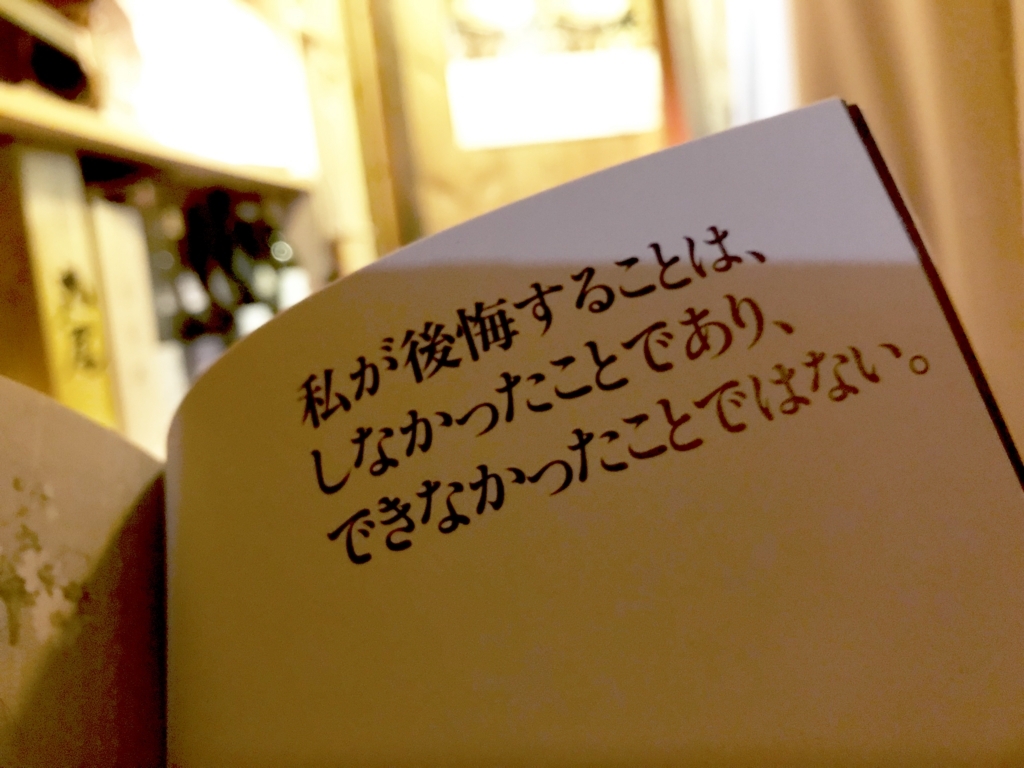 私が後悔することは、
しなかったことであり、
できなかったことではない。